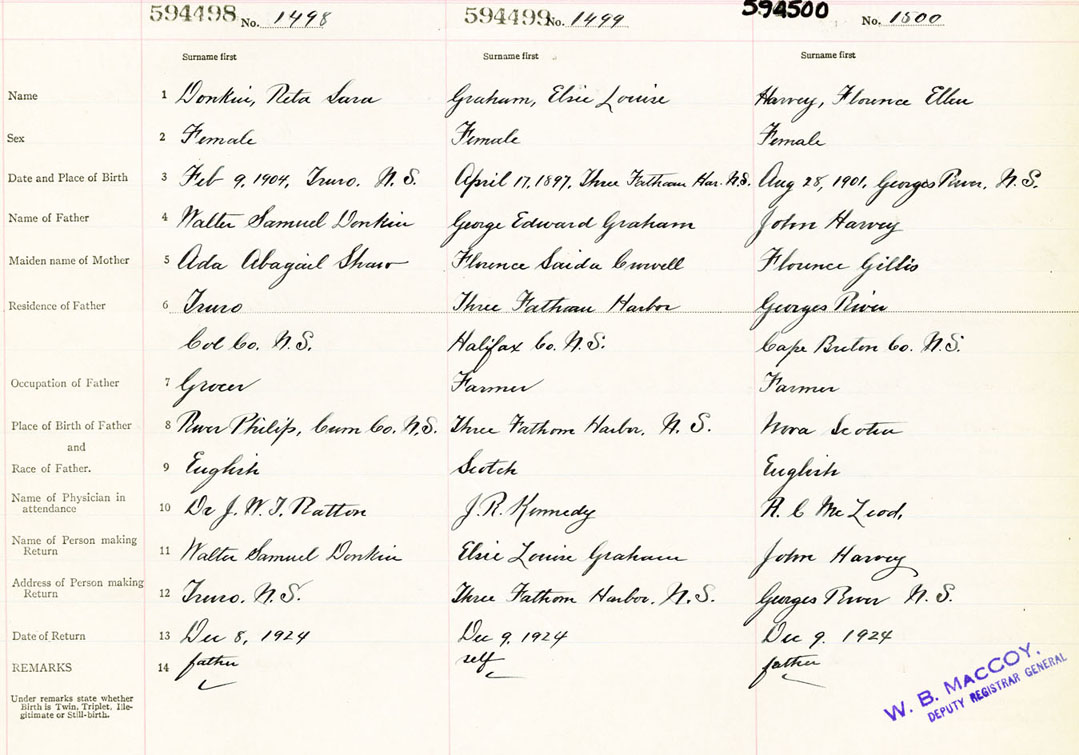 594498 No. 1498 594499 No. 1499 594500 No. 1500
Surname first Surname first Surname first
Name 1 Donkin, Reta Sara Graham, Elsie Louise Harvey, Florence Ellen
Sex 2 Female Female Female
Date and Place of Birth 3 Feb 9, 1904, Truro. N.S. April 17, 1897, Three Fathom Har. N.S. Aug 28, 1901, Georges River, N.S.
Name of Father 4 Walter Samuel Donkin George Edward Graham John Harvey
Maiden name of Mother 5 Ada Abagail Shaw Florence Saida Crowell Florence Gillis
Residence of Father 6 Truro Three Fathom Harbor Georges River
Col Co. N.S. Halifax Co. N.S. Cape Breton Co. N.S.
Occupation of Father 7 Grocer Farmer Farmer
Place of Birth of Father 8 River Philip, Cum Co. N.S. Three Fathom Harbor, N.S. Nova Scotia
and
Race of Father. 9 English Scotch English
Name of Physician in
attendance 10 Dr J. W. T. Patton J. R. Kennedy A. C McLeod,
Name of Person making
Return 11 Walter Samuel Donkin Elsie Louise Graham John Harvey
Address of Person making
Return 12 Truro. N.S. Three Fathom Harbor. N.S. Georges River N.S.
Date of Return 13 Dec 8, 1924 Dec 9, 1924 Dec 9. 1924
REMARKS 14 father self father
Under remarks state whether
Birth is Twin, Triplet, Ille-
gitimate or Still-birth.
W. B. MACCOY,
DEPUTY REGISTRAR GENERAL